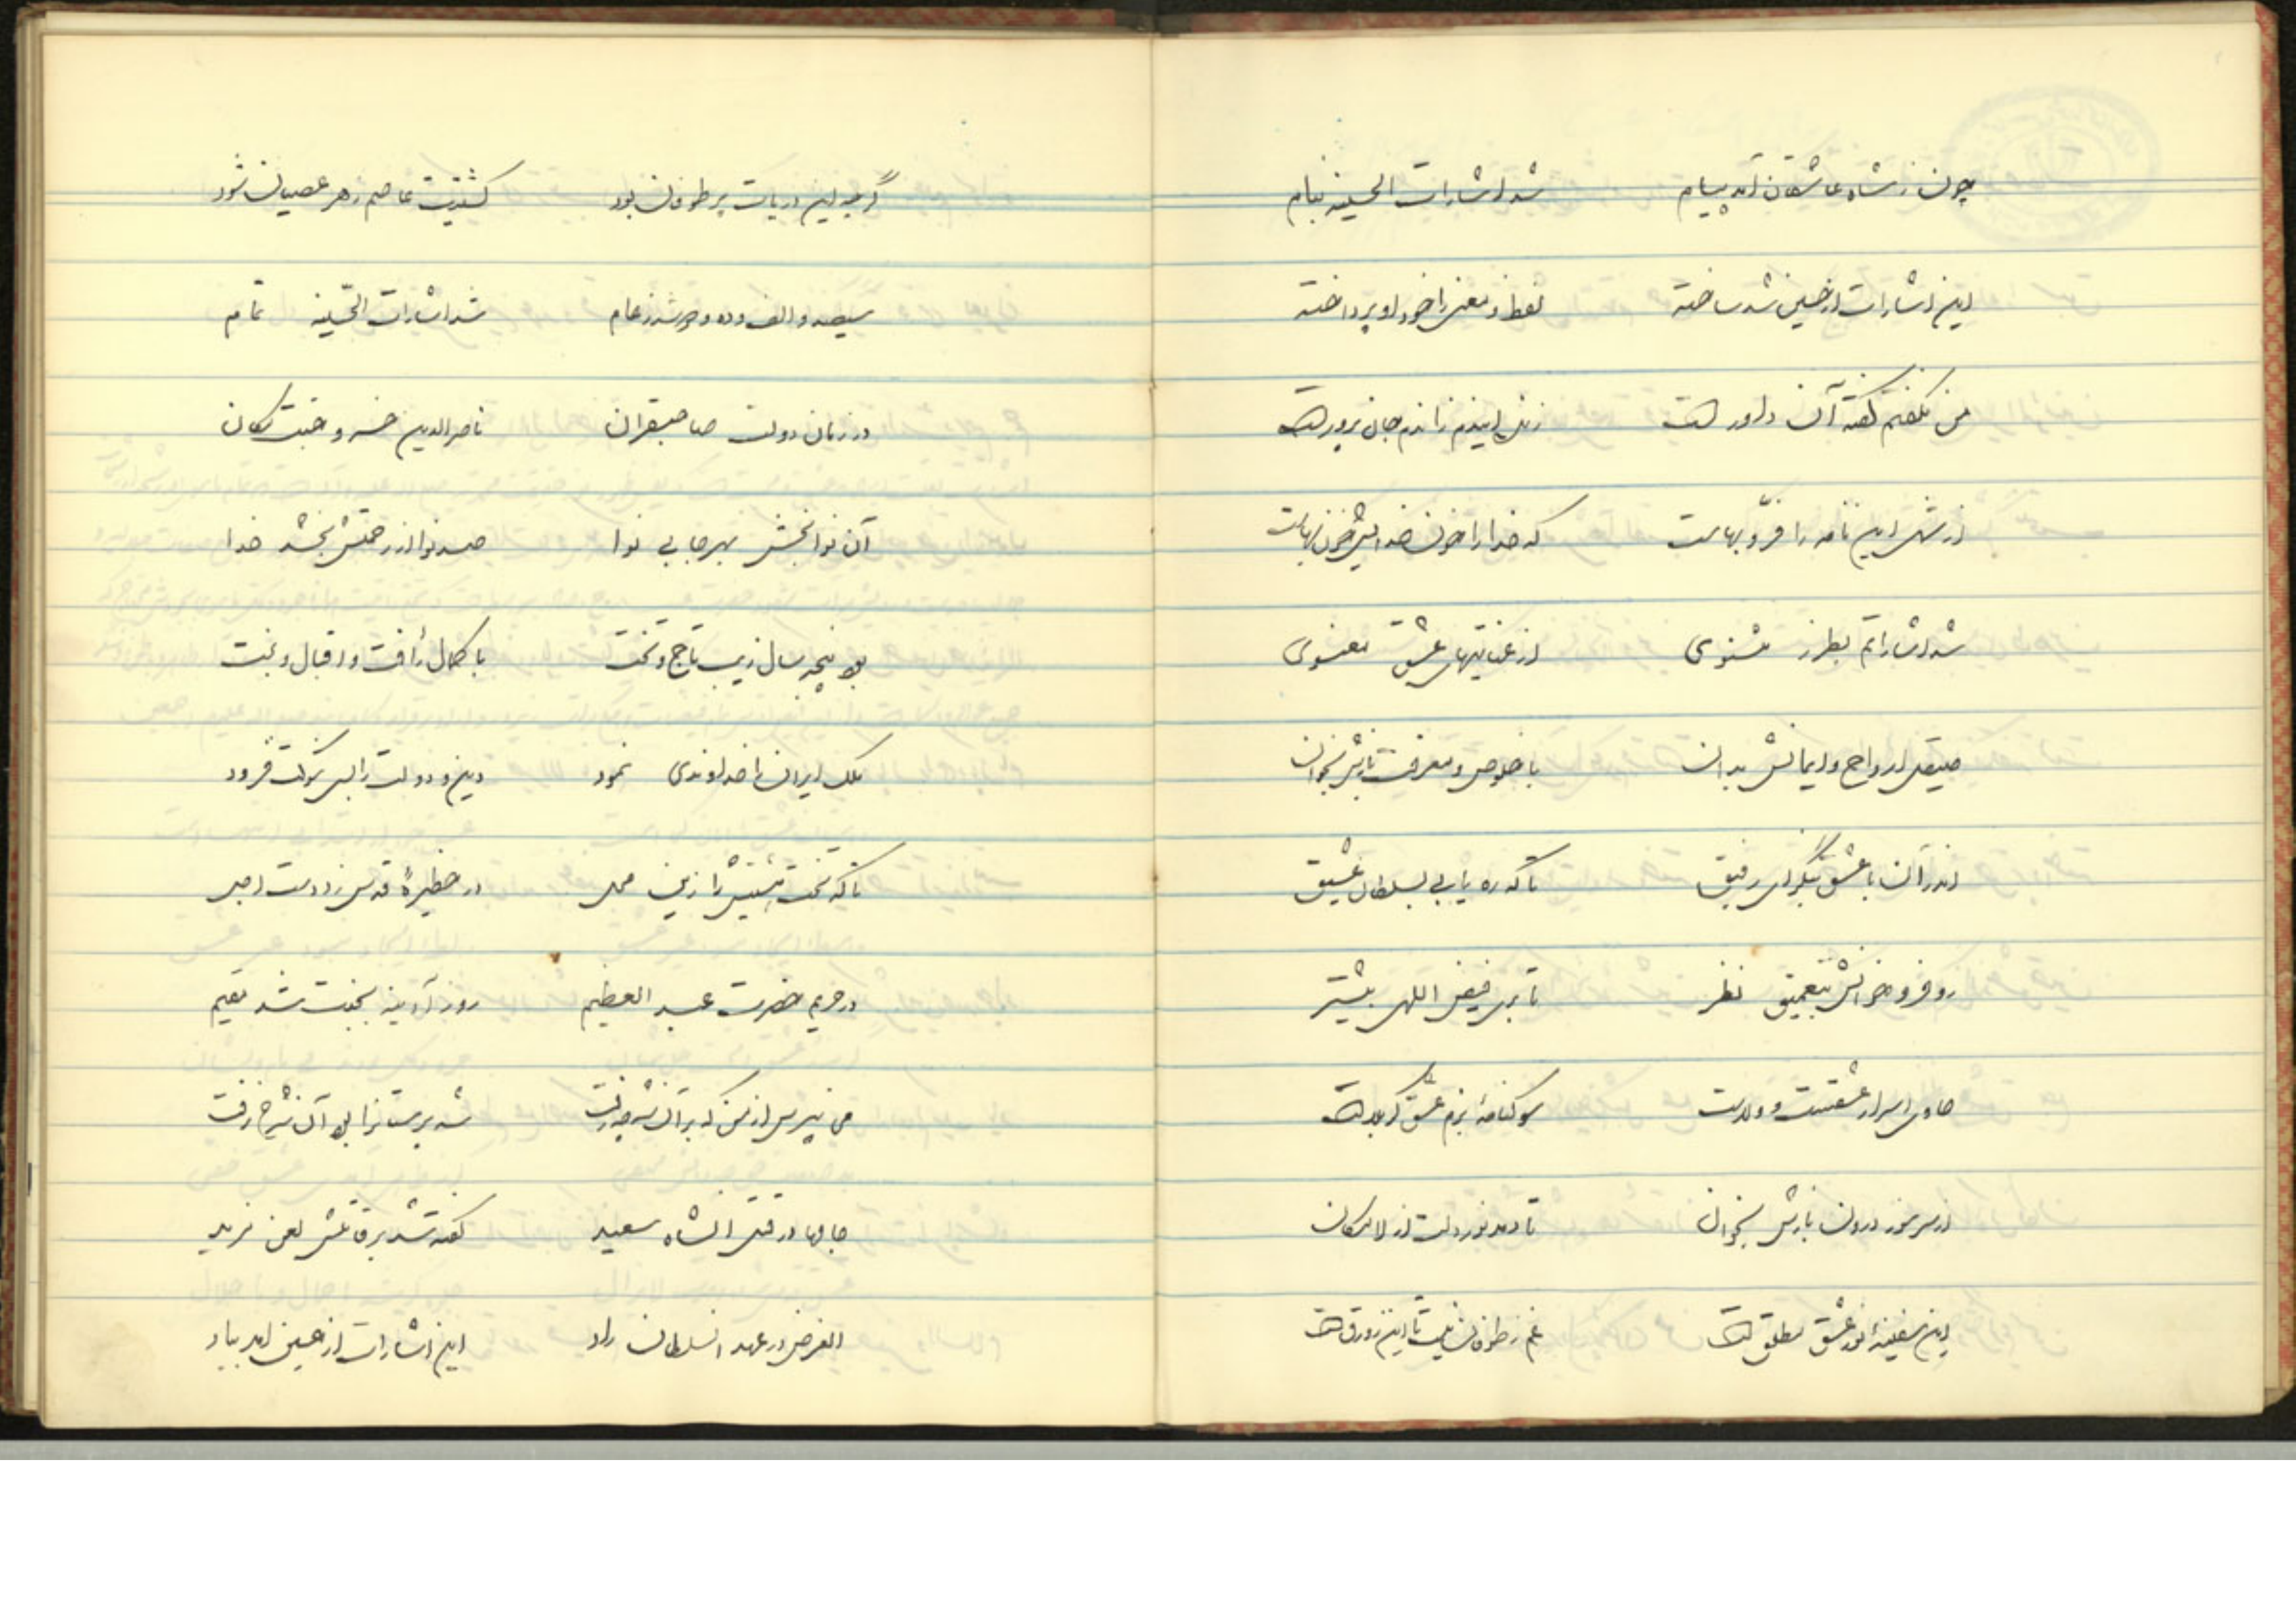 چون ز شاه عاشقان آمد پیام شد اشارات الحسینیه بنام
این اشارات از حسین شد ساخته لفظ و معنی را خود او پرداخته
من نگفتم گفته آن داور است زنده اینم زاندم جان پرور است
از شهی این نامه را فرّ و بهاست که خدا را خون خدایش خونبهاست
شد اشاراتم بطرز مثنوی از عنایتهای عشق معنوی
صیقل ارواح و ایمانش بدان با خلوص و معرفت بازش بخوان
اندر آن با عشق بنگر ای رفیق تا که ره یابی بسلطان عشیق
رو فرو خوانش بتعمیق نظر تا بری فیض اللهی بیشتر
حاوی اسرار عشقست و ولاست سوکنامهٔ بزم عشق کربلاست
از سر سوز درون بازش بخوان تا دمد نور دلت از لامکان
این سفینهٔ نور عشق مطلق است غم ز طوفان نیست تا این زورق است
گرچه این دریات پر طوفان بود کشتیت عاصم ز هر عصیان شود
سیصد و الف و ده و چر شد ز عام شد اشارات الحسینیه تمام
در زمان دولت صاحبقران ناصرالدین خسرو جنت مکان
آن نوابخش بهر جا بی نوا صد نوا از رحمتش بخشد خدا
بود پنجه سال زیب تاج و تخت با کمال رأفت و اقبال و بخت
ملک ایران را خداوندی نمود دین و دولت را بسی شوکت فزود
تا که تخت هشتش را زین محل در حظیرهٔ قدس زد دست اجل
در حریم حضرت عبدالعظیم روز آدینه بجنت شد مقیم
می نپرس از من که بر آن شه چه رفت شه پرستی را بر آن شه رخ برفت
جابها در قتل آنشاه سعید گفته شد بر قاتلش لعن مزید
الغرض در عهد آنسلطان راد این اشارات از حسین آمد بیاد